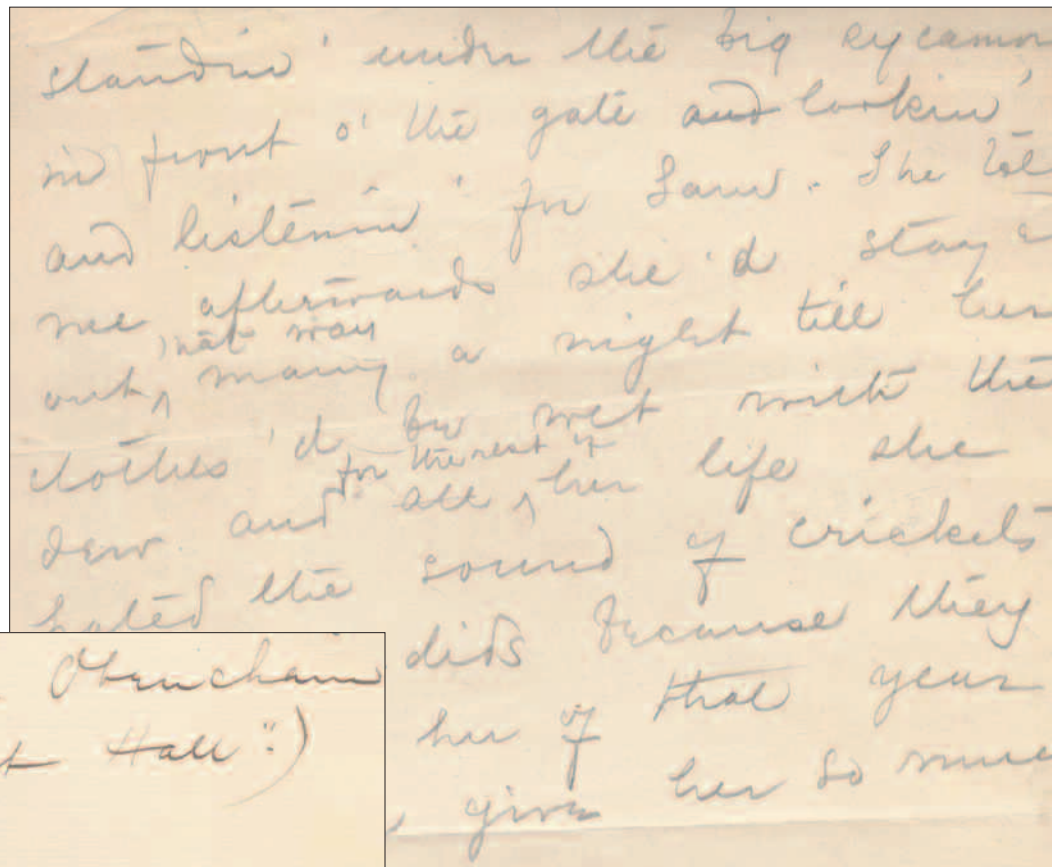 standin' under the big sycamor
in front o' the gate and lookin'
and listenin' for Sam. She tol
me afterwards she'd stay
out, that way many a night till her
clothes 'd be wet with the
dew and all for the rest of her life she
hated the sound of crickets
dids because they
her of that year
, given her so much
Obenchain
t Hall".)